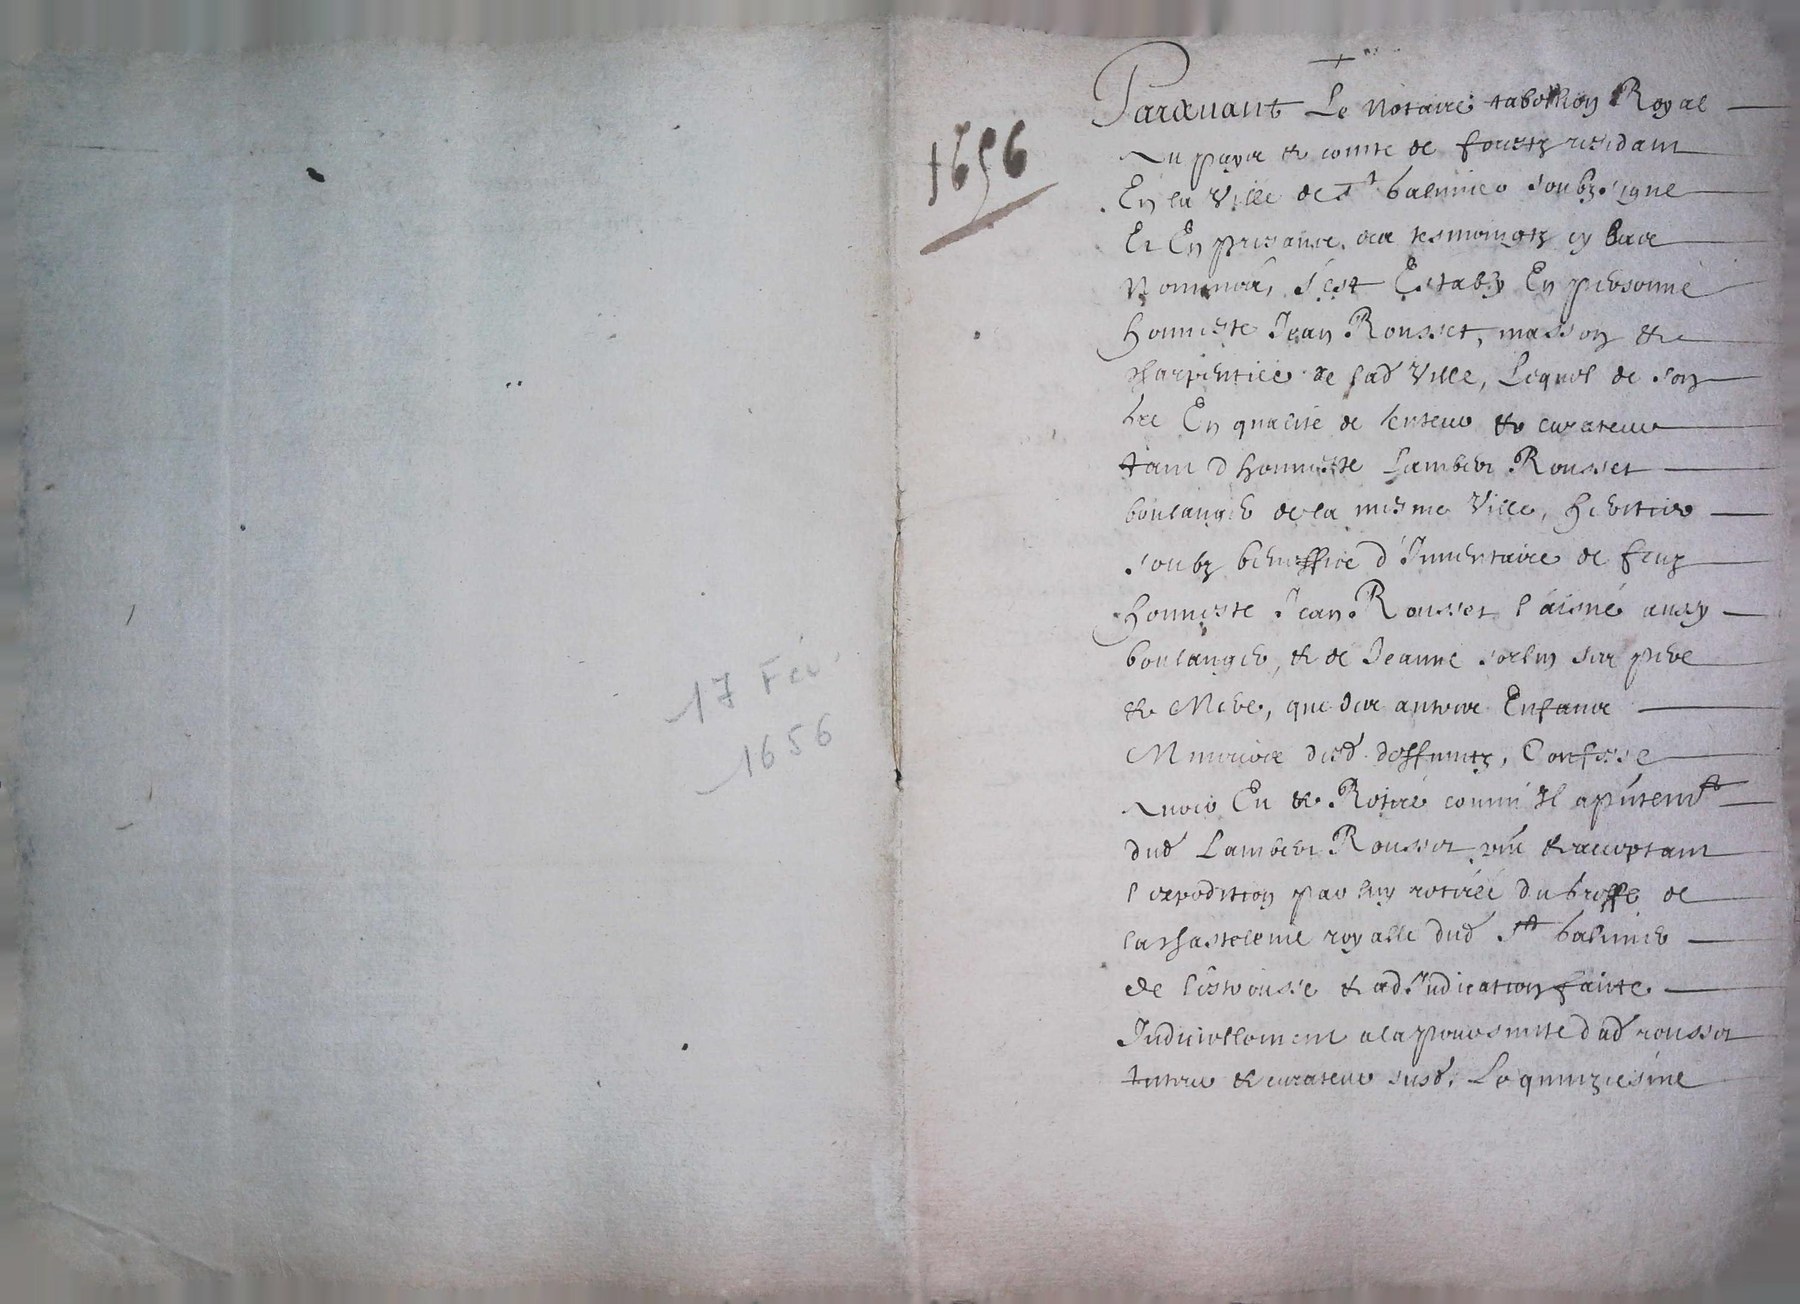 17 Fev
1656
1656
Paravant Le Notaire tabellion Royal
Au pays & comte de forestz residant
En la Ville de St balmier soubzsigne
Et En presance des tesmoingtz cy bas
Nommés, s'est Estably En personne
honneste Jean Rousset, masson &
charpentier de lad Ville, Lequel de son
En qualité de tuteur & curateur
tant d'honneste Lambert Rousset
boulangier de la mesme Ville, heritier
soubz beneffice d'Inventaire de feuz
honneste Jean Rousset l'aisné aussy
boulangier, & de Jeanne ses pere
& Mere, que des autres Enfans
Mineurs desd. deffuntz, Confesse
Avoir Eu & Retiré comme Il
dud Lambert Rousset & acceptant
l'expedition par luy retirée du greffe de
la chastelenie royalle dud St balmier
de l'estrousse & adJudication faicte
Judiciellement a la poursuitte dud rousset
tuteur & curateur susd. Le quinziesme